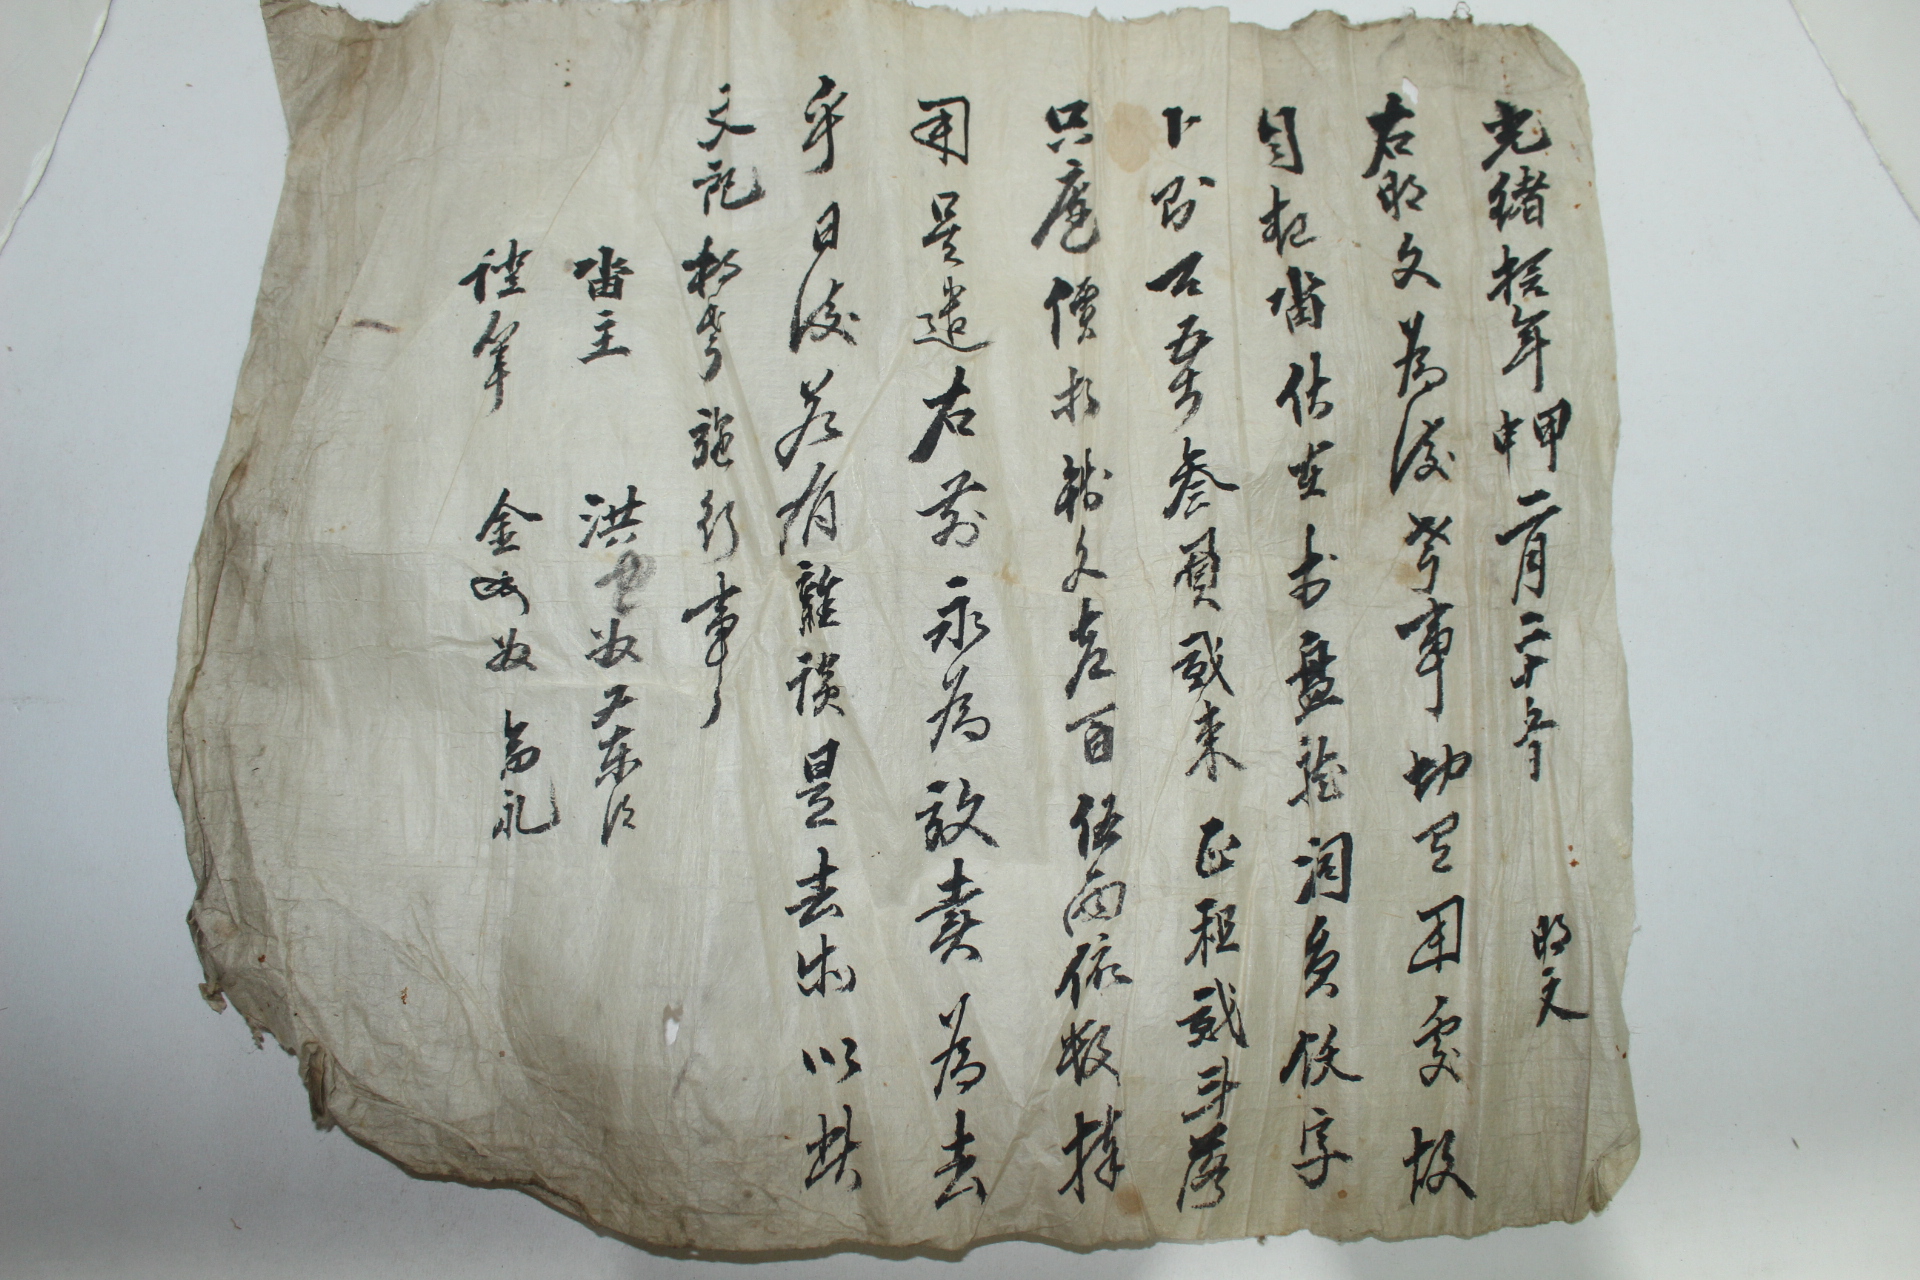 光緖拾年甲申二月二十五日 明文
右明文爲後考事切有用處故
自起畓伏在 盤龍洞員 字
卜 石五斗叁員貳束正租貳斗落
只庫價折錢文壹百伍兩依數捧
用是遣右前永爲放賣爲去
乎日後若有雜談是去等以此
文記相考施行事
畓主 洪 奴 東
證筆 金 奴 禮